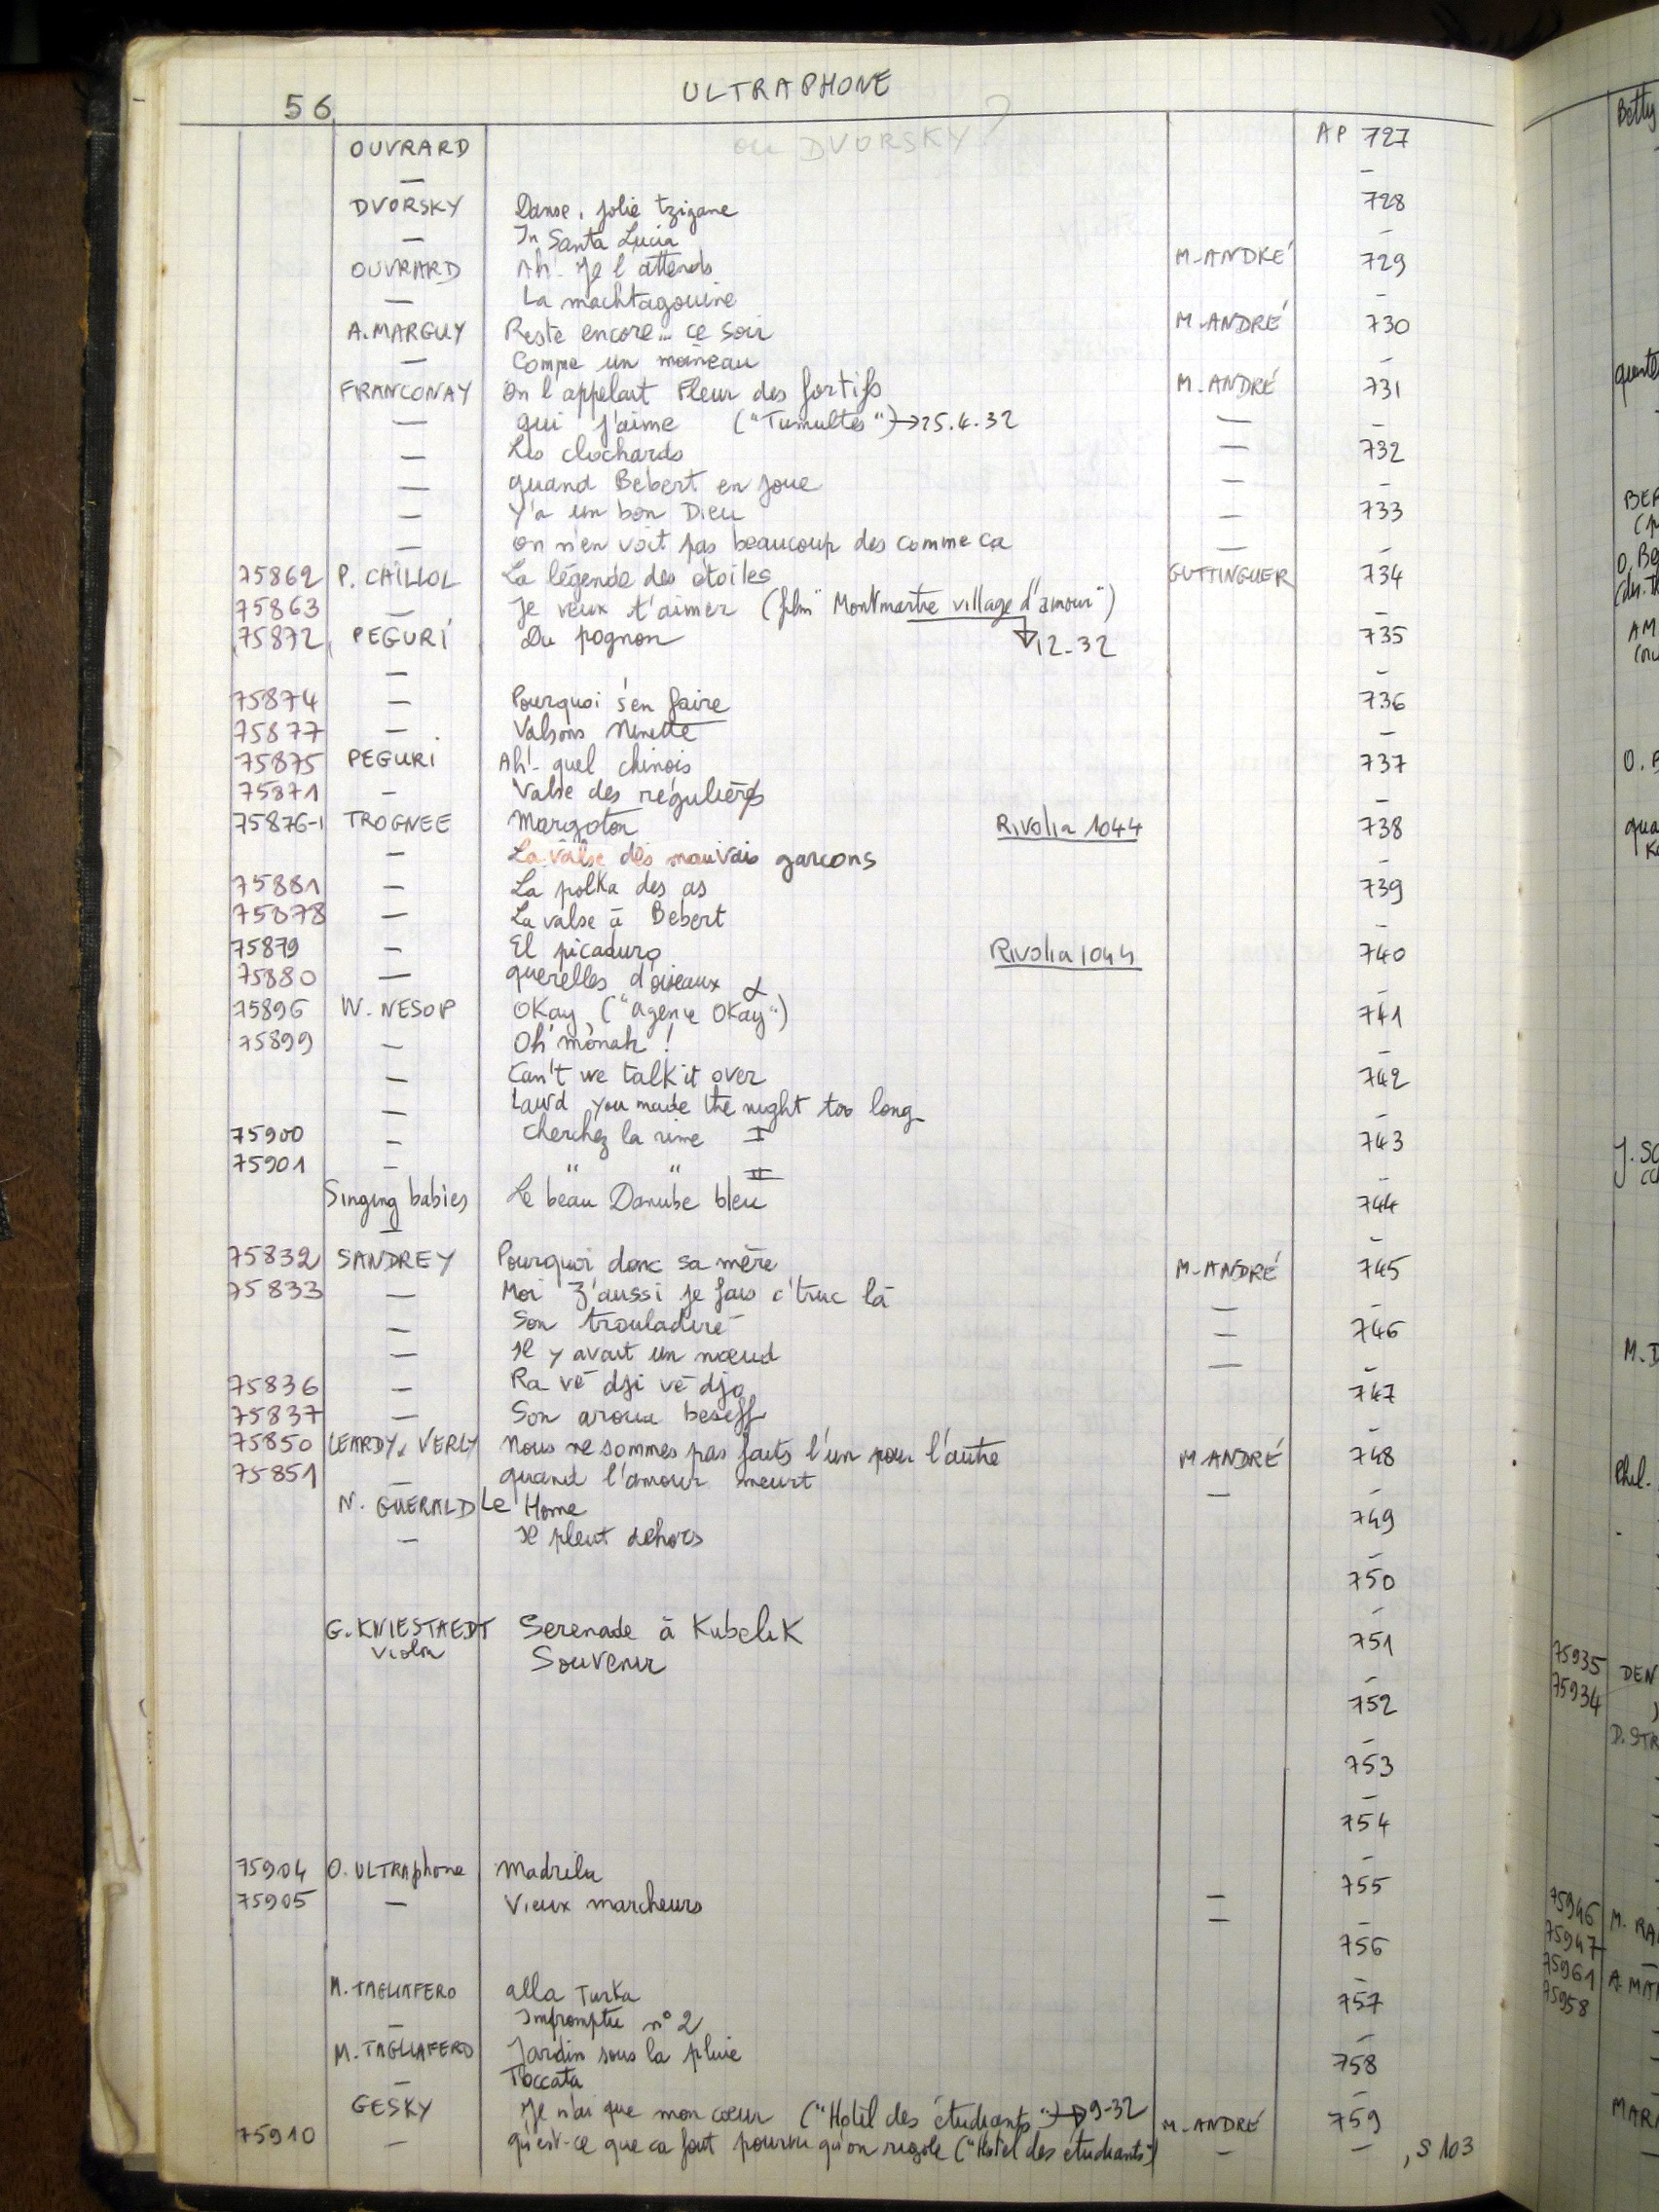 56 ULTRAPHONE
OUVRARD ou DVORSKY ? AP 727
— -
DVORSKY Danse, jolie tzigane 728
— In Santa Lucia -
OUVRARD Ah! Je l'attends M. ANDRÉ 729
— La machtagouine -
A. MARGUY Reste encore... ce soir M. ANDRÉ 730
— Comme un moineau -
FRANCONAY On l'appelait Fleur des fortifs M. ANDRÉ 731
— qui j'aime ("Tumultes") → 25.4.32 — -
— Les clochards — 732
— quand Bebert en joue — -
— Y'a un bon Dieu — 733
— on n'en voit pas beaucoup des comme ca — -
75862 P. CAILLOL La légende des étoiles GUTTINGUER 734
75863 — Je veux t'aimer (film "Montmartre village d'amour") -
75872 PEGURI Du pognon 12-32 735
— -
75874 — Pourquoi s'en faire 736
75877 — Valsons Ninette -
75875 PEGURI Ah! quel chinois 737
75871 - Valse des régulières -
75876-1 TROGNEE Margoton Rivolia 1044 738
— La valse des mauvais garcons -
75881 — La polka des as 739
75878 — La valse à Bebert -
75879 - El picaduro Rivolia 1044 740
75880 — querelles d'oiseaux -
75896 W. NESOP OKay ("Agence OKay") 741
75899 — Oh' monah ! -
— Can't we talk it over 742
— Lawd you made the night too long -
75900 - cherchez la rime I 743
75901 - " " II -
Singing babies Le beau Danube bleu 744
— -
75832 SANDREY Pourquoi donc sa mère M. ANDRÉ 745
75833 — Moi z'aussi je fais c'truc là — -
— Son trouladire — 746
— Il y avait un nœud — -
75836 — Ra vé dji vé djo 747
75837 — Son aroua beseff -
75850 LEARDY, VERLY Nous ne sommes pas faits l'un pour l'autre M ANDRÉ 748
75851 — quand l'amour meurt — -
N. GUERALD Le Home 749
— Il pleut dehors -
750
-
G. KNIESTAEDT Serenade à Kubelik 751
violon Souvenir -
752
-
753
-
754
-
75904 O. ULTRAphone Madrila 755
75905 — Vieux marcheurs — -
— 756
-
M. TAGLIAFERO alla Turka 757
— Impromptu n° 2 -
M. TAGLIAFERO Jardin sous la pluie 758
— Toccata -
GESKY Je n'ai que mon cœur ("Hotel des étudiants") → 9-32 M. ANDRÉ 759
75910 — qu'est-ce que ca fait pourvu qu'on rigole ("Hotel des étudiants") — — , S 103
Betty
BER
O. Be
AM
O. P
qua
J. SO
M. D
Phil.
75935 DEN
75934
D. STR
75946 M. RA
75947
75961 A. MA
75958
MAR